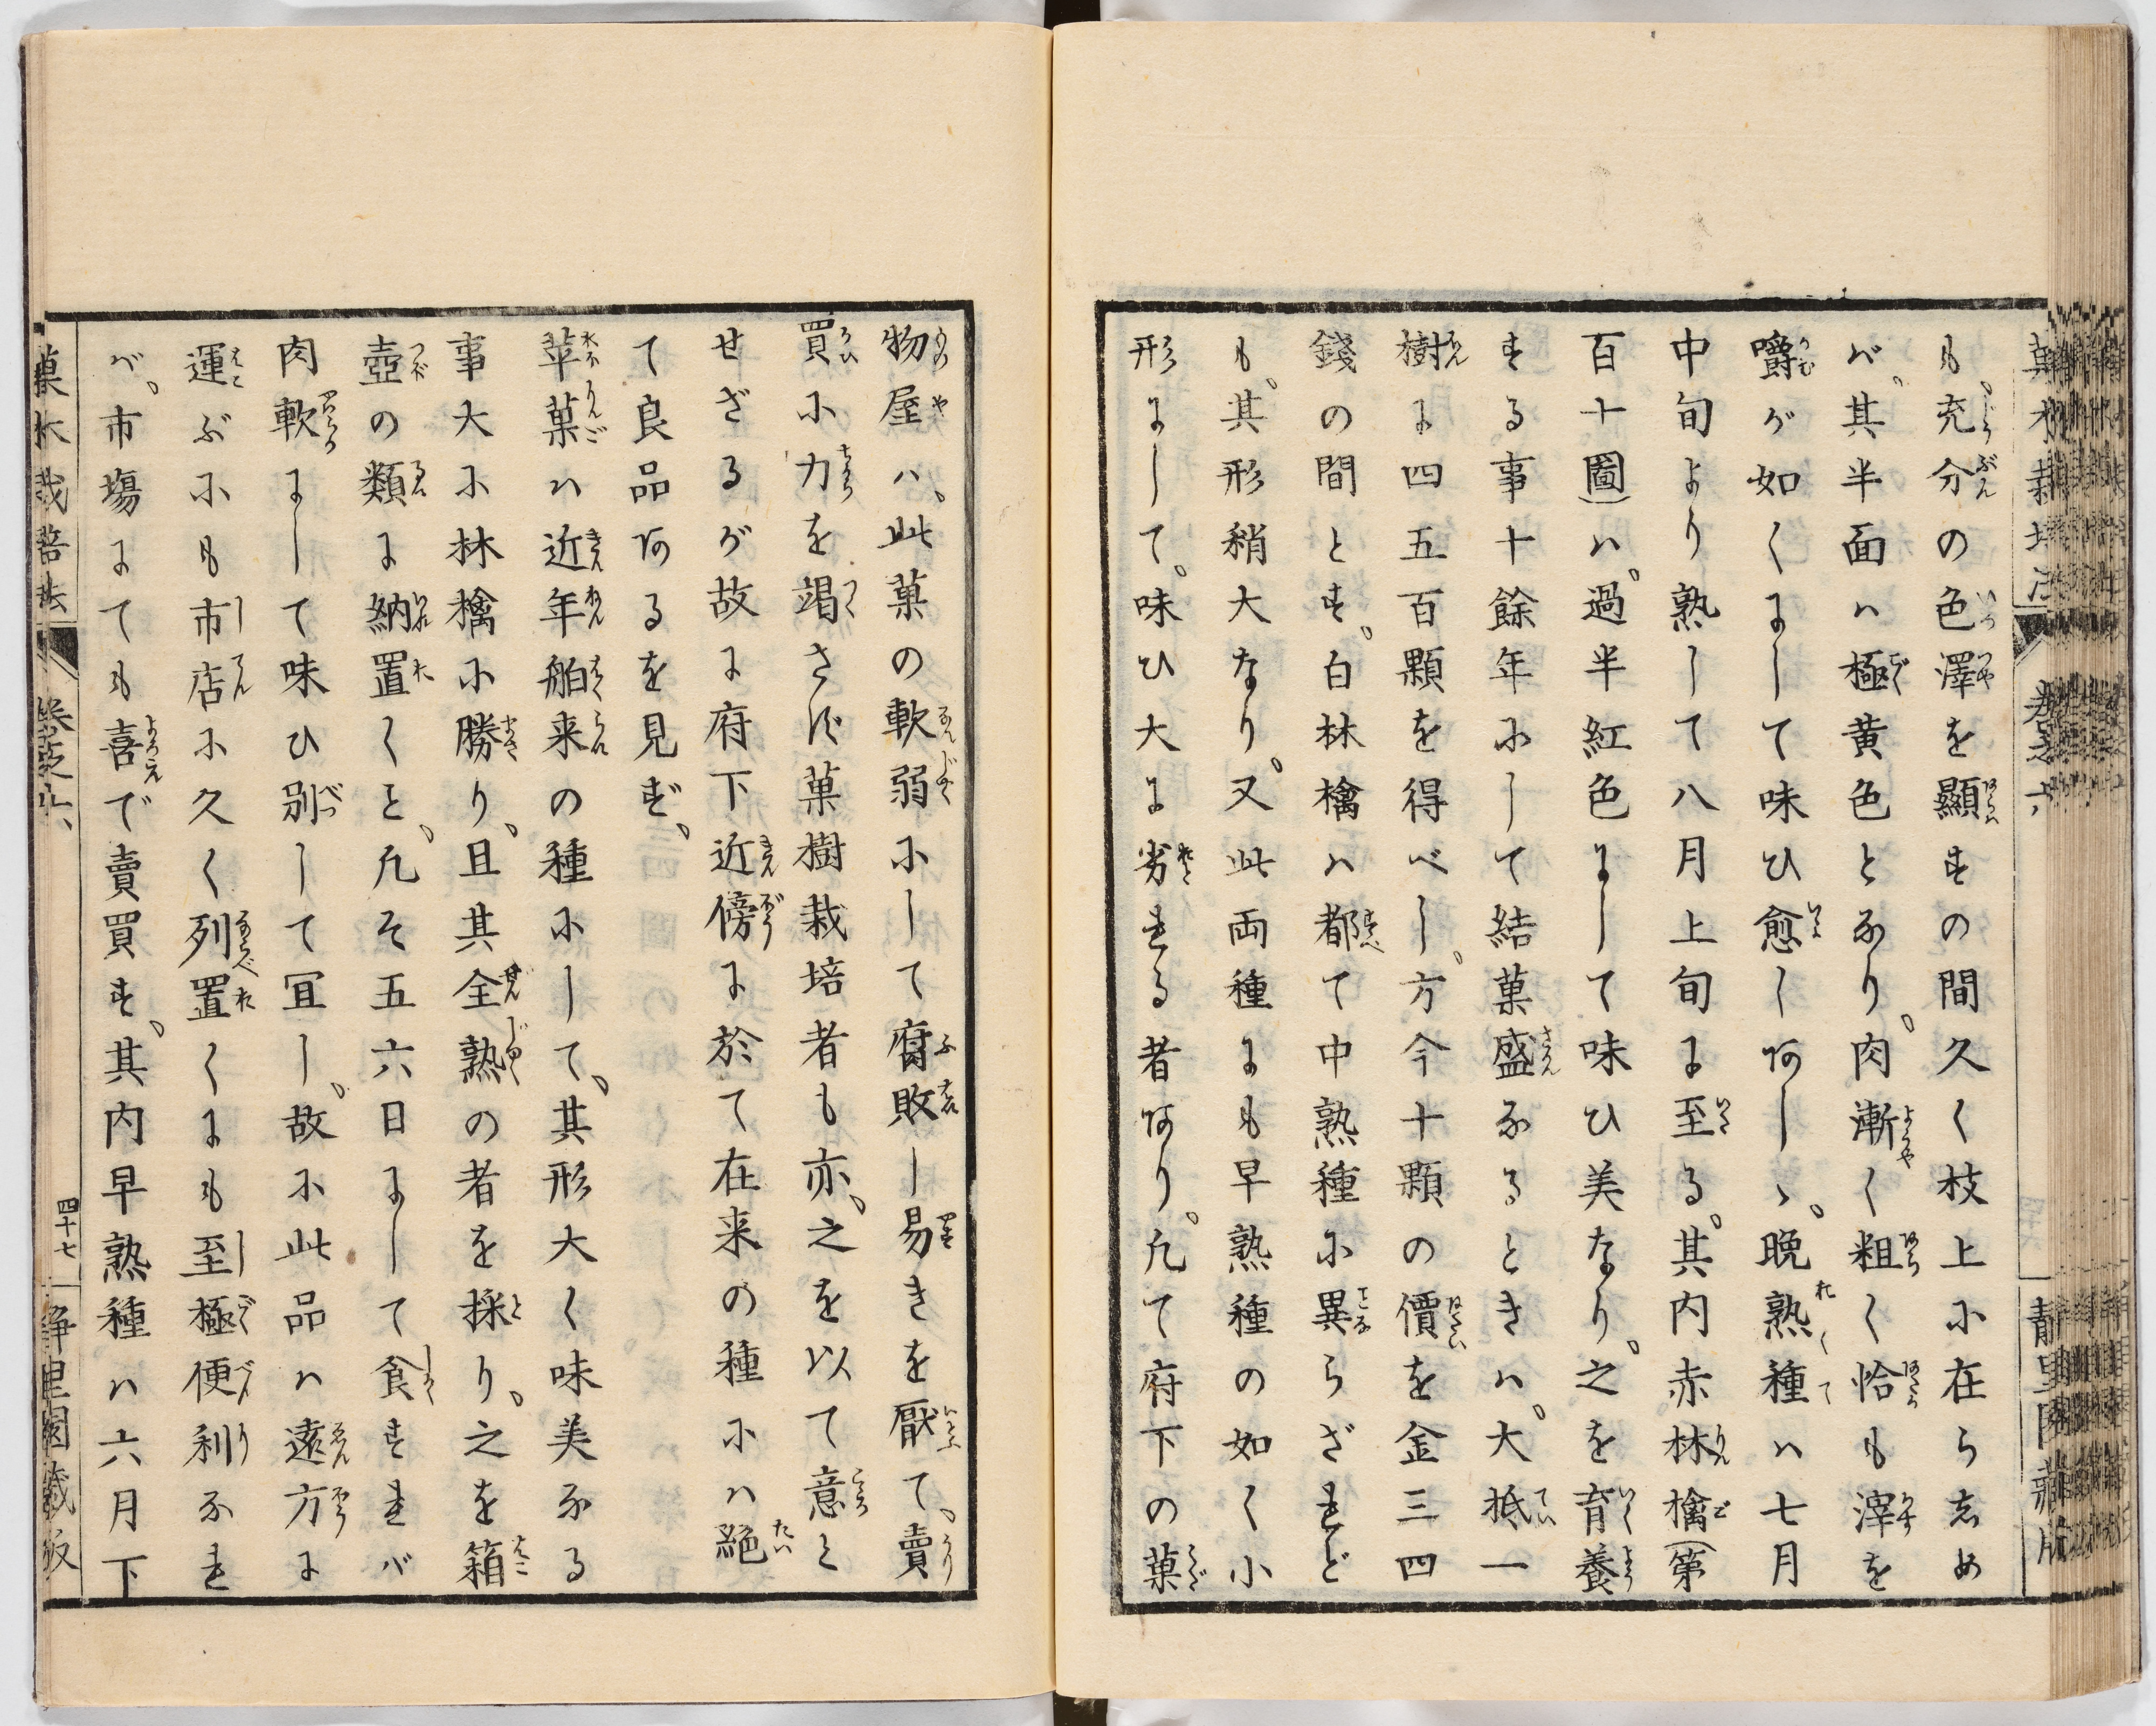 も、充分の色澤を顯すの間久く枝上に在らしめ
ば、其半面ハ極黄色となり、肉漸く粗く恰も滓を
嚼が如くにして味ひ愈しあしゝ、晩熟種ハ七月
中旬より熟して八月上旬に至る、其内赤林檎(第
百十圖)ハ、過半紅色にして味ひ美なり、之を育養
する事十餘年にして結菓盛なるときハ、大抵一
樹に四五百顆を得べし、方今十顆の價を金三四
錢の間とす、白林檎ハ都て中熟種に異らざれど
も、其形稍大なり、又此両種にも早熟種の如く小
形にして、味ひ大に劣れる者あり、凢て府下の菓
物屋ハ、此菓の軟弱にして腐敗し易きを厭て、賣
買に力を竭さず菓樹栽培者も亦、之を以て意と
せざるが故に府下近傍に於て在来の種にハ絶
て良品あるを見ず、
苹菓ハ近年舶来の種にして、其形大く味美なる
事大に林檎に勝り、且其全熟の者を採り、之を箱
壺の類に納置くと、凢そ五六日にして食すれバ
肉軟にして味ひ別して冝し、故に此品ハ遠方に
運ぶにも市店に久く列置くにも至極便利なれ
バ、市塲にても喜で賣買す、其内早熟種ハ六月下
菓木栽培法 巻之六 四十七 静里園蔵版